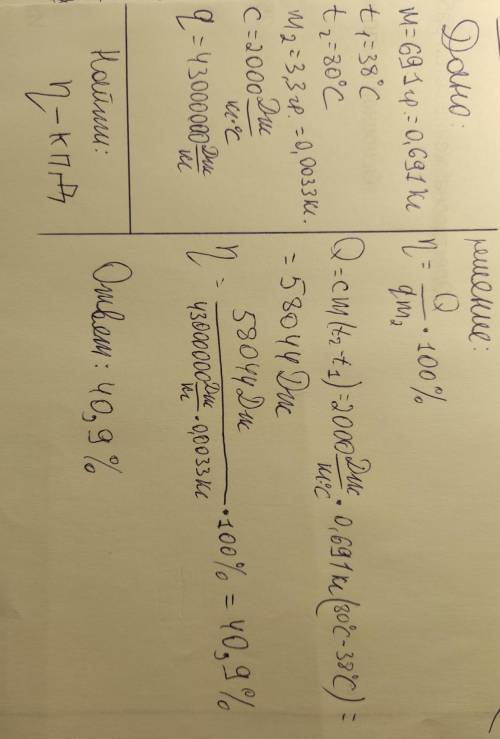 Дано:
m=691гр.=0,691кг
t₁=38°C
t₂=80°C
m₂=3,3гр.=0,0033кг.
c=2000 Дж/кг·°C
q=43000000 Дж/кг
Найти:
η-КПД
решение:
η = Q/qm₂ · 100%
Q=cm(t₂-t₁)=2000 Дж/кг·°C · 0,691кг(80°C-38°C)=
=58044Дж
η = 58044Дж/43000000 Дж/кг · 0,0033кг · 100% = 40,9%
Ответ: 40,9%